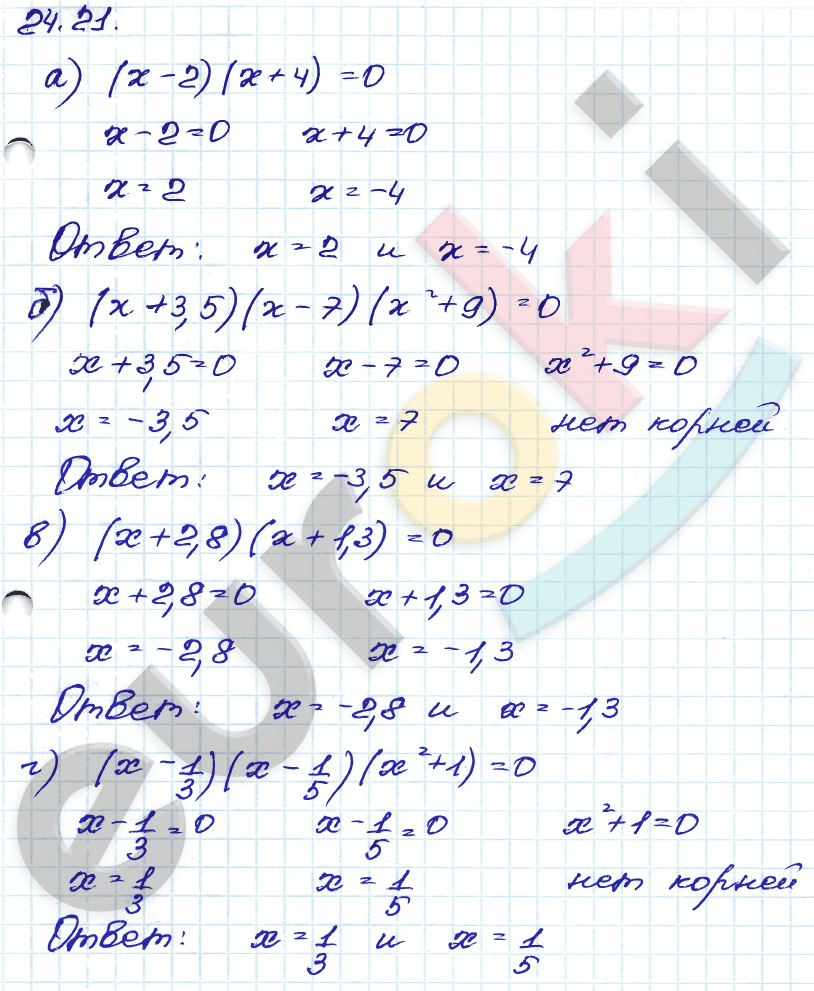 24.21.
а) (x - 2)(x + 4) = 0
x - 2 = 0 x + 4 = 0
x = 2 x = -4
Ответ: x = 2 и x = -4
б) (x + 3,5)(x - 7)(x² + 9) = 0
x + 3,5 = 0 x - 7 = 0 x² + 9 = 0
x = -3,5 x = 7 нет корней
Ответ: x = -3,5 и x = 7
в) (x + 2,8)(x + 1,3) = 0
x + 2,8 = 0 x + 1,3 = 0
x = -2,8 x = -1,3
Ответ: x = -2,8 и x = -1,3
г) (x - 1/3)(x - 1/5)(x² + 1) = 0
x - 1/3 = 0 x - 1/5 = 0 x² + 1 = 0
x = 1/3 x = 1/5 нет корней
Ответ: x = 1/3 и x = 1/5
euroki